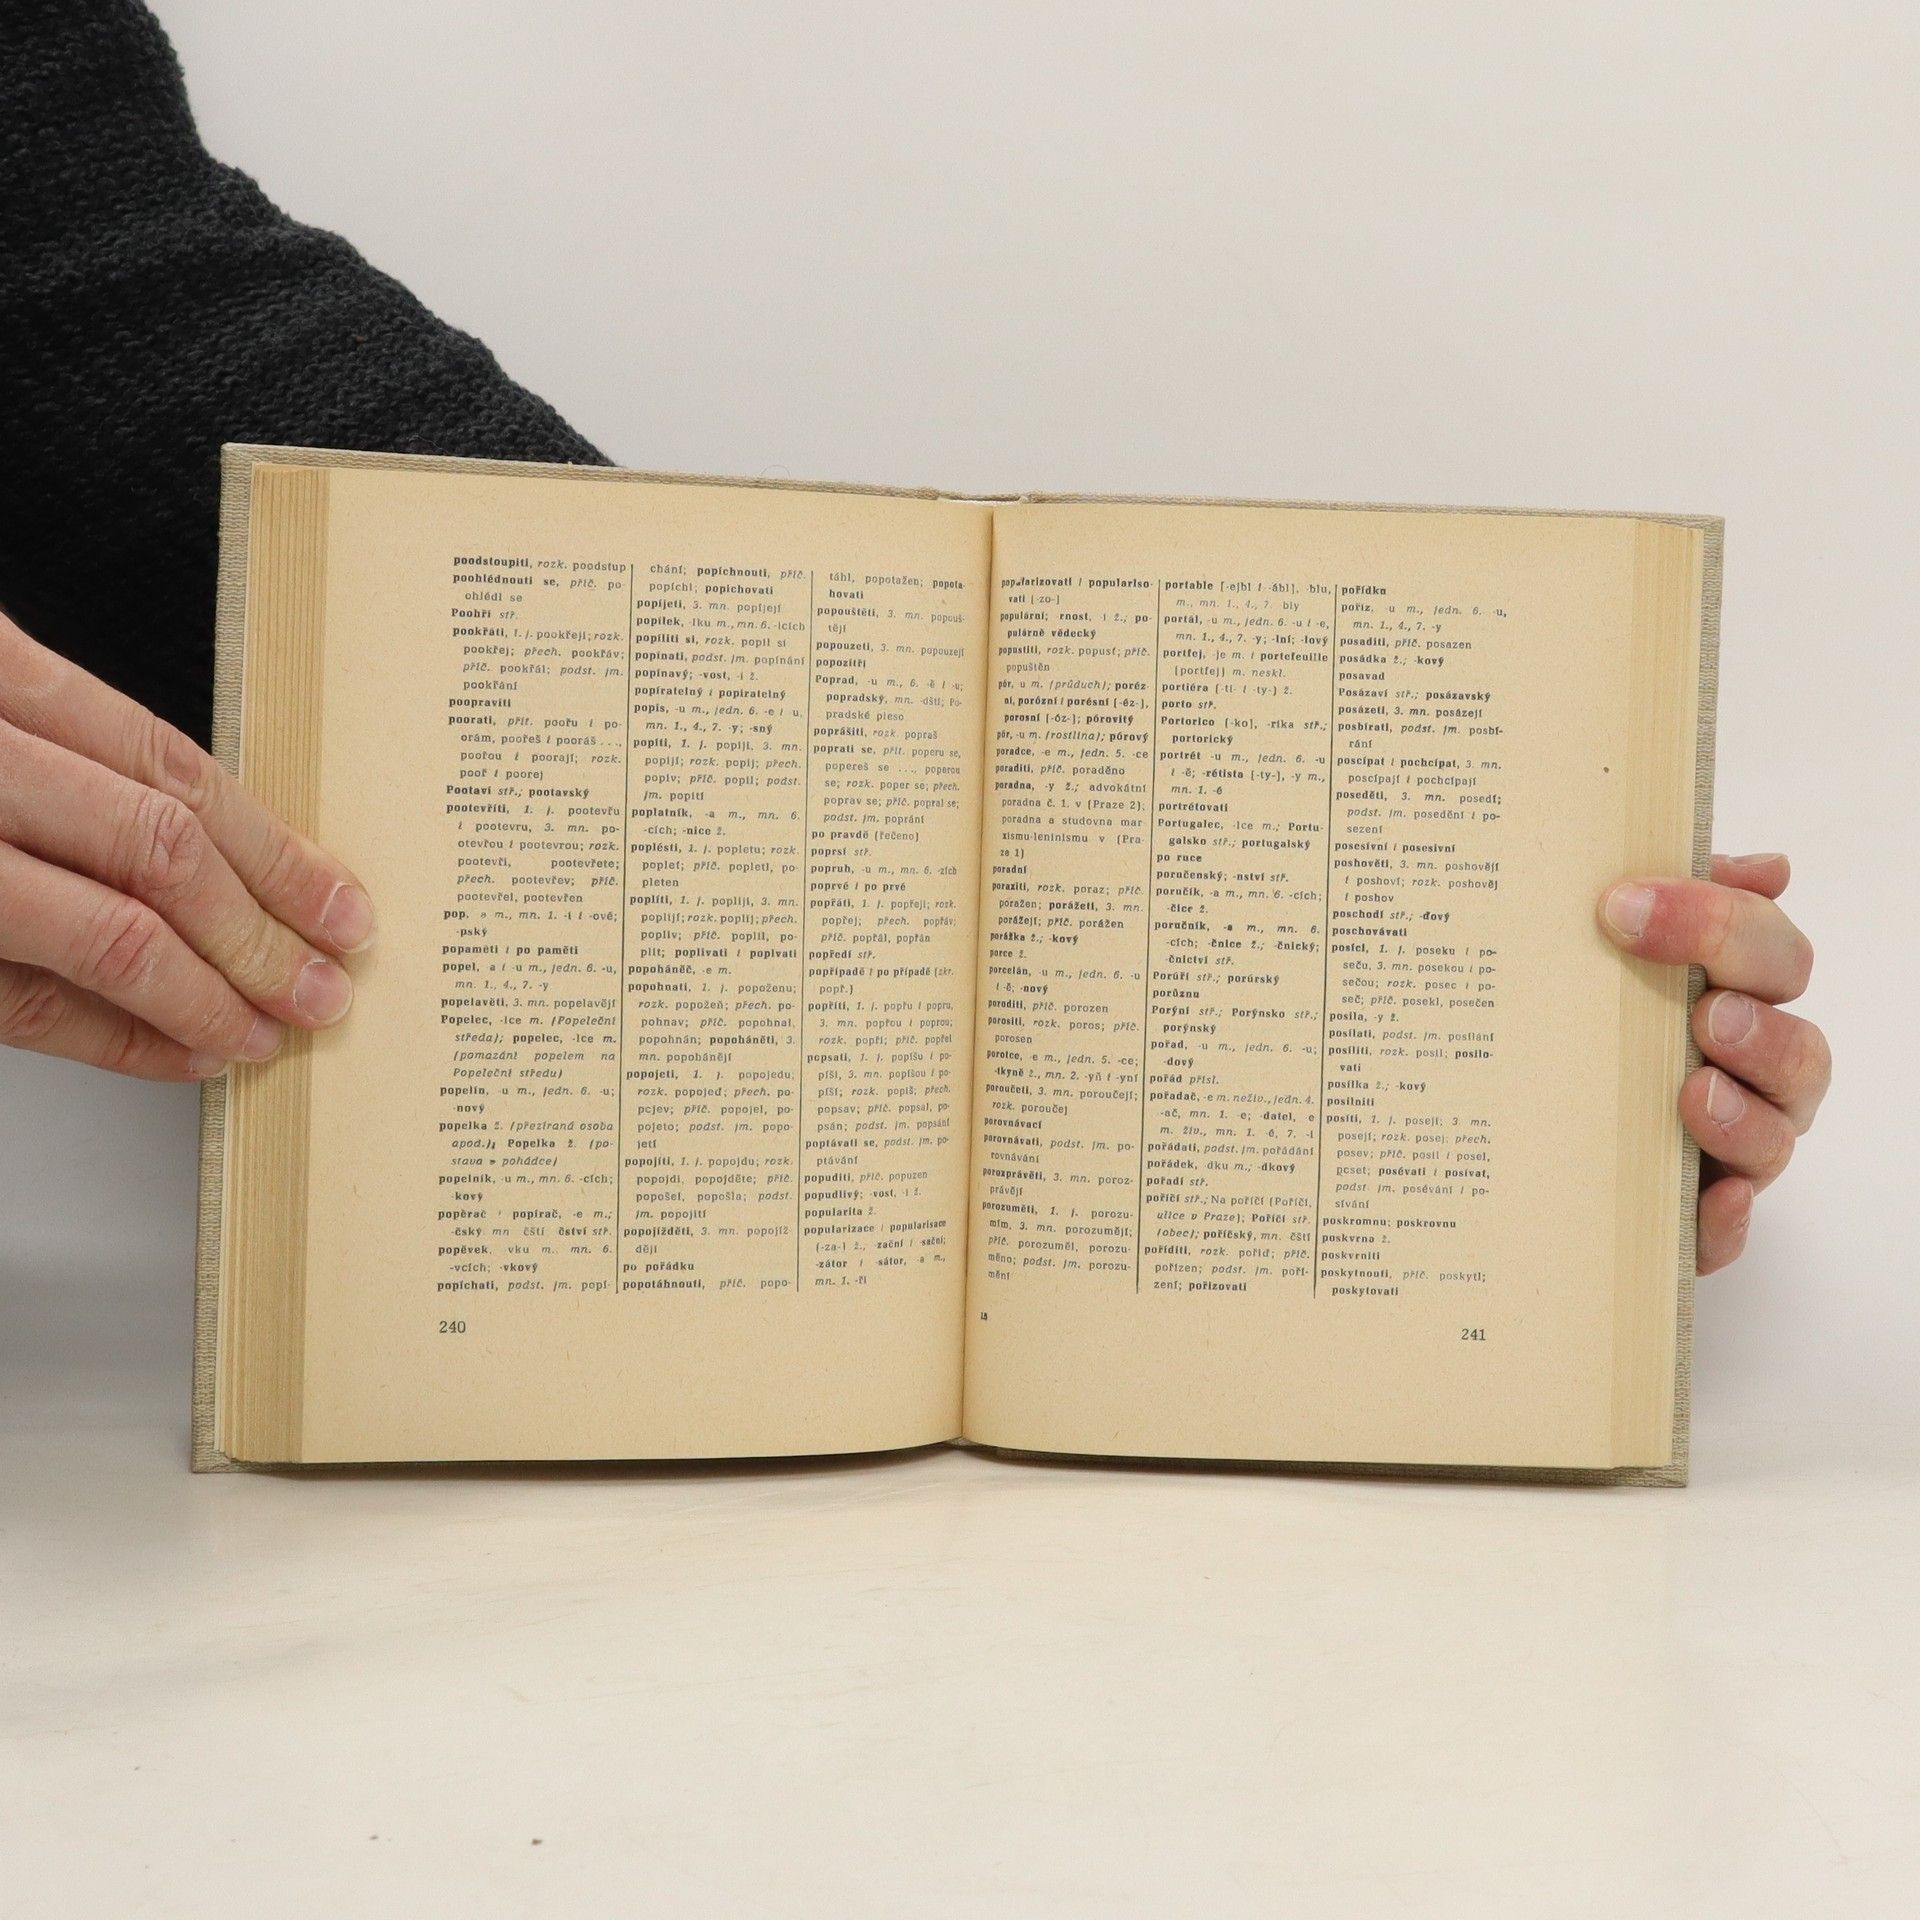 poodstoupiti, rozk. poodstup
poohlédnouti se, příč. po-
ohlédl se
Poohří stř.
pookřáti, 1. j. pookřeji; rozk.
pookřej; přech. pookřáv;
příč. pookřál; podst. jm.
pookřání
poopraviti
poorati, přít. poořu i po-
orám, poořeš i pooráš ...,
poořou i poorají; rozk.
pooř i poorej
Pootaví stř.; pootavský
pootevříti, 1. j. pootevřu
i pootevru, 3. mn. po-
otevřou i pootevrou; rozk.
pootevři, pootevřete;
přech. pootevřev; příč.
pootevřel, pootevřen
pop, -a m., mn. 1. -i i -ové;
-pský
popaměti i po paměti
popel, -a i -u m., jedn. 6. -u,
mn. 1., 4., 7. -y
popelavěti, 3. mn. popelavějí
Popelec, -lce m. (Popeleční
středa); popelec, -lce m.
(pomazání popelem na
Popeleční středu)
popelín, -u m., jedn. 6. -u;
-nový
popelka ž. (přezíraná osoba
apod.); Popelka ž. (po-
stava v pohádce)
popelník, -u m., mn. 6. -cích;
-kový
popěrač i popírač, -e m.;
-čský mn čští -čství stř.
popěvek, -vku m., mn. 6.
-vcích; -vkový
popíchati, podst. jm. popí-
240
chání; popíchnouti, příč.
popíchl; popichovati
popíjeti, 3. mn. popíjejí
popílek, -lku m., mn. 6. -lcích
popíliti si, rozk. popil si
popínati, podst. jm. popínání
popínavý; -vost, -i ž.
popíratelný i popiratelný
popis, -u m., jedn. 6. -e i -u,
mn. 1., 4., 7. -y; -sný
popíti, 1. j. popiji, 3. mn.
popijí; rozk. popij; přech.
popiv; příč. popil; podst.
jm. popití
poplatník, -a m., mn. 6.
-cích; -nice ž.
poplésti, 1. j. popletu; rozk.
popleť; příč. popletl, po-
pleten
poplíti, 1. j. popliji, 3. mn.
poplijí; rozk. poplij; přech.
popliv; příč. poplil, po-
plit; poplívati i poplvati
popoháněč, -e m.
popohnati, 1. j. popoženu;
rozk. popožeň; přech. po-
pohnav; příč. popohnal,
popohnán; popoháněti, 3.
mn. popohánějí
popojeti, 1. j. popojedu;
rozk. popojeď; přech. po-
pojev; příč. popojel, po-
pojeto; podst. jm. popo-
jetí
popojíti, 1. j. popojdu; rozk.
popojdi, popojděte; příč.
popošel, popošla; podst.
jm. popojití
popojížděti, 3. mn. popojíž-
dějí
po pořádku
popotáhnouti, příč. popo-
táhl, popotažen; popota-
hovati
popouštěti, 3. mn. popouš-
tějí
popouzeti, 3. mn. popouzejí
popozítří
Poprad, -u m., 6. -ě i -u;
popradský, mn. -dští; Po-
pradské pleso
poprášiti, rozk. popraš
poprati se, přít. poperu se,
popereš se ..., poperou
se; rozk. poper se; přech.
poprav se; příč. popral se;
podst. jm. poprání
po pravdě (řečeno)
poprsí stř.
popruh, -u m., mn. 6. -zích
poprvé i po prvé
popřáti, 1. j. popřeji; rozk.
popřej; přech. popřáv;
příč. popřál, popřán
popředí stř.
popřípadě i po případě (zkr.
popř.)
popříti, 1. j. popřu i popru,
3. mn. popřou i poprou;
rozk. popři; příč. popřel
popsati, 1. j. popíšu i po-
píši, 3. mn. popíšou i po-
píší; rozk. popiš; přech.
popsav; příč. popsal, po-
psán; podst. jm. popsání
poptávati se, podst. jm. po-
ptávání
popuditi, příč. popuzen
popudlivý; -vost, -i ž.
popularita ž.
popularizace i popularisace
[-za-] ž., -zační i -sační;
-zátor i -sátor, -a m.,
mn. 1. -ři
popularizovati i popularіso-
vati [-zo-]
populární; -rnost, -i ž.; po-
pulárně vědecký
popustiti, rozk. popusť; příč.
popuštěn
pór, -u m. (průduch); poréz-
ní, porózní i porésní [-éz-],
porosní [-óz-]; pórovitý
pór, -u m. (rostlina); pórový
poradce, -e m., jedn. 5. -ce
poraditi, příč. poraděno
poradna, -y ž.; advokátní
poradna č. 1. v (Praze 2);
poradna a studovna mar-
xismu-leninismu v (Pra-
ze 1)
poradní
poraziti, rozk. poraz; příč.
poražen; porážeti, 3. mn.
porážejí; příč. porážen
porážka ž.; -kový
porce ž.
porcelán, -u m., jedn. 6. -u
i -ě; -nový
poroditi, příč. porozen
porositi, rozk. poros; příč.
porosen
porotce, -e m., jedn. 5. -ce;
-tkyně ž., mn. 2. -yň i -yní
poroučeti, 3. mn. poroučejí;
rozk. poroučej
porovnávací
porovnávati, podst. jm. po-
rovnávání
porozprávěti, 3. mn. poroz-
právějí
porozuměti, 1. j. porozu-
mím, 3. mn. porozumějí;
příč. porozuměl, porozu-
měno; podst. jm. porozu-
mění
portable [-ejbl i -ábl], -blu,
m., mn. 1., 4., 7. -bly
portál, -u m., jedn. 6. -u i -e,
mn. 1., 4., 7. -y; -lní; -lový
portfej, -je m. i portefeuille
[portfej] m. neskl.
portiéra [-ti- i -ty-] ž.
porto stř.
Portorico [-ko], -rika stř.;
portorický
portrét -u m., jedn. 6. -u
i -ě; -rétista [-ty-], -y m.,
mn. 1. -é
portrétovati
Portugalec, -lce m.; Portu-
galsko stř.; portugalský
po ruce
poručenský; -nství stř.
poručík, -a m., mn. 6. -cích;
-čice ž.
poručník, -a m., mn. 6.
-cích; -čnice ž.; -čnický;
-čnictví stř.
Porúří stř.; porúrský
porůznu
Porýní stř.; Porýnsko stř.;
porýnský
pořad, -u m., jedn. 6. -u;
-dový
pořád přísl.
pořadač, -e m. neživ., jedn. 4.
-ač, mn. 1. -e; -datel, -e
m. živ., mn. 1. -é, 7. -i
pořádati, podst. jm. pořádání
pořádek, -dku m.; -dkový
pořadí stř.
poříčí stř.; Na poříčí (Poříčí,
ulice v Praze); Poříčí stř.
(obec); poříčský, mn. čští
poříditi, rozk. pořiď; příč.
pořízen; podst. jm. poří-
zení; pořizovati
pořídku
pořiz, -u m., jedn. 6. -u,
mn. 1., 4., 7. -y
posaditi, příč. posazen
posádka ž.; -kový
posavad
Posázaví stř.; posázavský
posázeti, 3. mn. posázejí
posbírati, podst. jm. posbí-
rání
poscípat i pochcípat, 3. mn.
poscípají i pochcípají
poseděti, 3. mn. posedí;
podst. jm. posedění i po-
sezení
posesívní i posesivní
poshověti, 3. mn. poshovějí
i poshoví; rozk. poshověj
i poshov
poschodí stř.; -ďový
poschovávati
posíci, 1. j. poseku i po-
seču, 3. mn. posekou i po-
sečou; rozk. posec i po-
seč; příč. posekl, posečen
posila, -y ž.
posílati, podst. jm. posílání
posíliti, rozk. posil; posilo-
vati
posilka ž.; -kový
posilniti
posíti, 1. j. poseji; 3. mn.
posejí; rozk. posej; přech.
posev; příč. posil i posel,
poset; posévati i posívat,
podst. jm. posévání i po-
sívání
poskromnu; poskrovnu
poskvrna ž.
poskvrniti
poskytnouti, příč. poskytl;
poskytovati
241